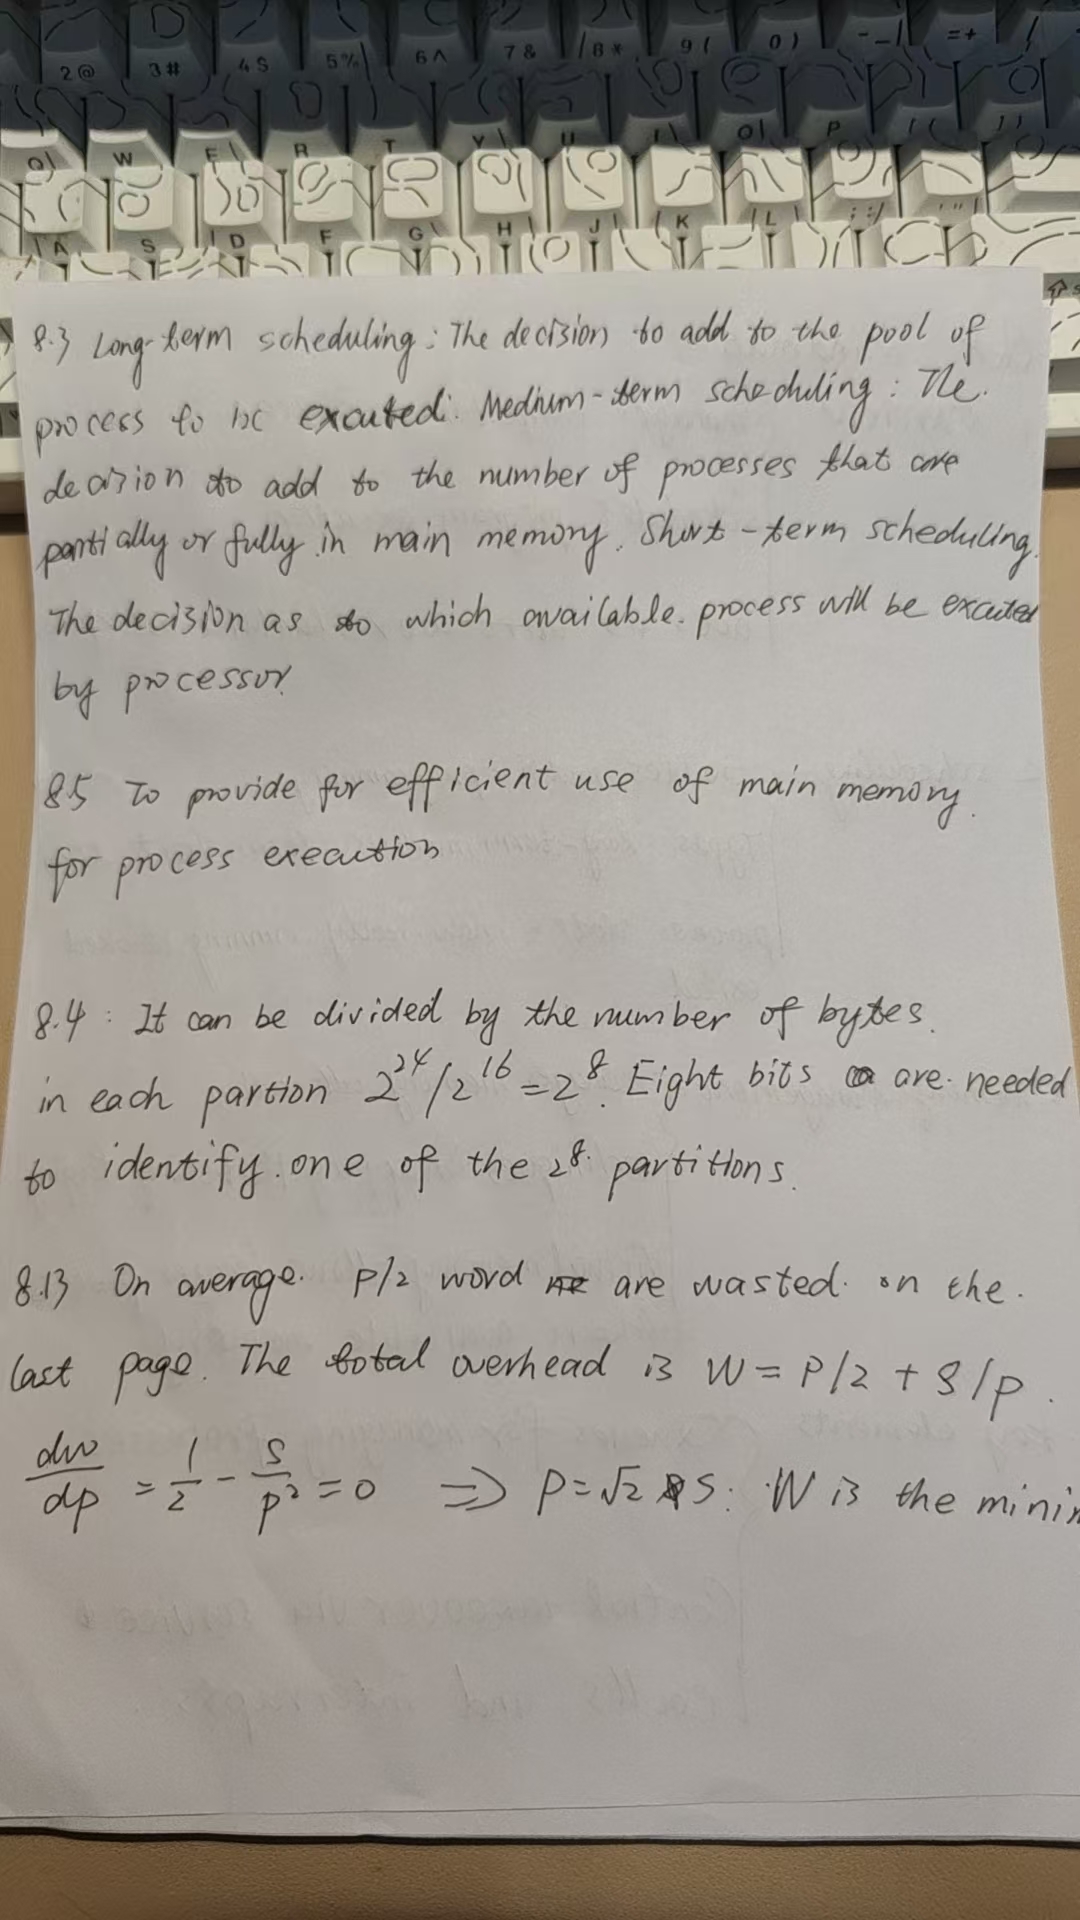 2@ 3# 4$ 5% 6^ 7& 8* 9( 0) -_ =+
Q W E R T Y U I O P
A S D F G H J K L ;: '"
8.3 Long-term scheduling: The decision to add to the pool of
process to be excuted. Medium-term scheduling: The.
decision to add to the number of processes that are
partially or fully in main memory. Short-term scheduling.
The decision as to which available process will be excuted
by processor.
8.5 To provide for efficient use of main memory.
for process execution
8.4: It can be divided by the number of bytes.
in each partion 2^24/2^16=2^8. Eight bits are needed
to identify one of the 2^8. partitions.
8.13 On average. P/2 word are wasted on the.
last page. The total overhead is W = P/2 + S/p.
dw/dp = 1/2 - S/p^2 = 0 ⇒ P=√2 S. W is the minim